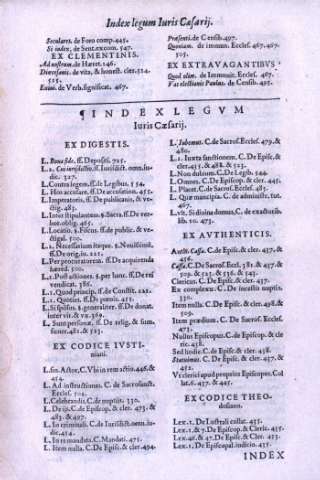 Index legum Iuris Cæsarij.
Seculares. de Foro comp. 445.
Si index, de Sent. excom. 547.
EX CLEMENTINIS.
Ad nostrum. de Hæret. 146.
Diœcesanis. de vita, & honest. cler. 524.
525.
Exiui. de Verb. significat. 467.
Præsenti. de Censib. 497.
Quoniam. de immun. Eccles. 467.
505.
EX EXTRAVAGANTIBVS
Quod olim. de Immunit. Eccles. 467.
Vas electionis Paulus. de Censib. 495.
¶ INDEX LEGVM
Iuris Cæsarij.
EX DIGESTIS.
L. Bona fide. ff. Depositi. 705.
L. 2. ff. de Iurisdict. omn. iu-
dic. 327.
L. Contra legem. ff. de Legibus. 154.
L. Hos accusare. ff. de accusation. 455.
L. Imperatoris. ff. De publicanis, & ve-
ctig. 485.
L. Inter stipulantem. §. Sacra. ff. De ver-
bor. oblig. 465.
L. Locatio. §. Fiscus. ff. de public. & ve-
ctigal. 500.
L. 2. Necessarium itaque. §. Nouissimè.
ff. De orig. iu. 221.
L. Per procuratorem. ff. De acquirenda
hæred. 500.
L. Post actiones. §. per hanc. ff. De rei
vendicat. 386.
L. 1. Quod princip. ff. de Constit. 221.
L. 1. Quotiat. ff. De pœnis. 455.
L. Si sponsus. §. generaliter. ff. De donat.
inter vir. & vx. 369.
L. Sunt personæ. ff. De relig. & sum.
funer. 481. & 523.
EX CODICE IVSTI-
niani.
L. fin. Actor. C. Vbi in rem actio. 446. &
454.
L. Ad instructiones. C. de Sacrosanct.
Eccles. 501.
L. Celebrandis. C. de nuptiis. 330.
L. De ijs. C. de Episcop. & cler. 473. &
483. & 497.
L. In criminali. C. de Iurisdict. om. iu-
dic. 454.
L. In re mandata. C. Mandati. 475.
L. Item nulla. C. De Episc. & cler. 494.
L. Iubemus. C. de Sacros. Eccles. 479. &
480.
L. 2. Iuxta sanctionem. C. De Episc. &
cler. 435. & 488. & 523.
L. Non dubium. C. De Legib. 544.
L. Omnes. C. De Episcop. & cler. 445.
L. Placet. C. de Sacros. Eccles. 485.
L. Quæ mancipia. C. de administr. tut.
467.
L. vlt. Si diuina domus. C. de exactorib.
lib. 10. 473.
EX AVTHENTICIS.
Auth. Cassa. C. de Episc. & cler. 437. &
456.
Cassa. C. De Sacros. Eccl. 381. & 437. &
509. & 525. & 536. & 543.
Clericus. C. De Episc. & cler. 437.
Ex complexu. C. de incestis nuptiis.
330.
Item nulla. C. De Episc. & cler. 498. &
509.
Item prædium. C. De Sacros. Eccles.
473.
Nullus Episcopus. C. De Episcop. & cle
ric. 438.
Sed hodie. C. de Episc. & cler. 438.
Statuimus. C. De Episc. & cler. 437. &
455.
Vt clerici apud proprios Episcopos. Col
lat. 6. 437. & 405.
EX CODICE THEO-
dosiano.
Lex. 1. De Lustrali collat. 435.
Lex. 1. & 7. De Episcop. & Cleric. 435.
Lex. 41. & 47. De Episc. & Cler. 435.
Lex. 1. De Episcopal. iudicio. 435.
INDEX